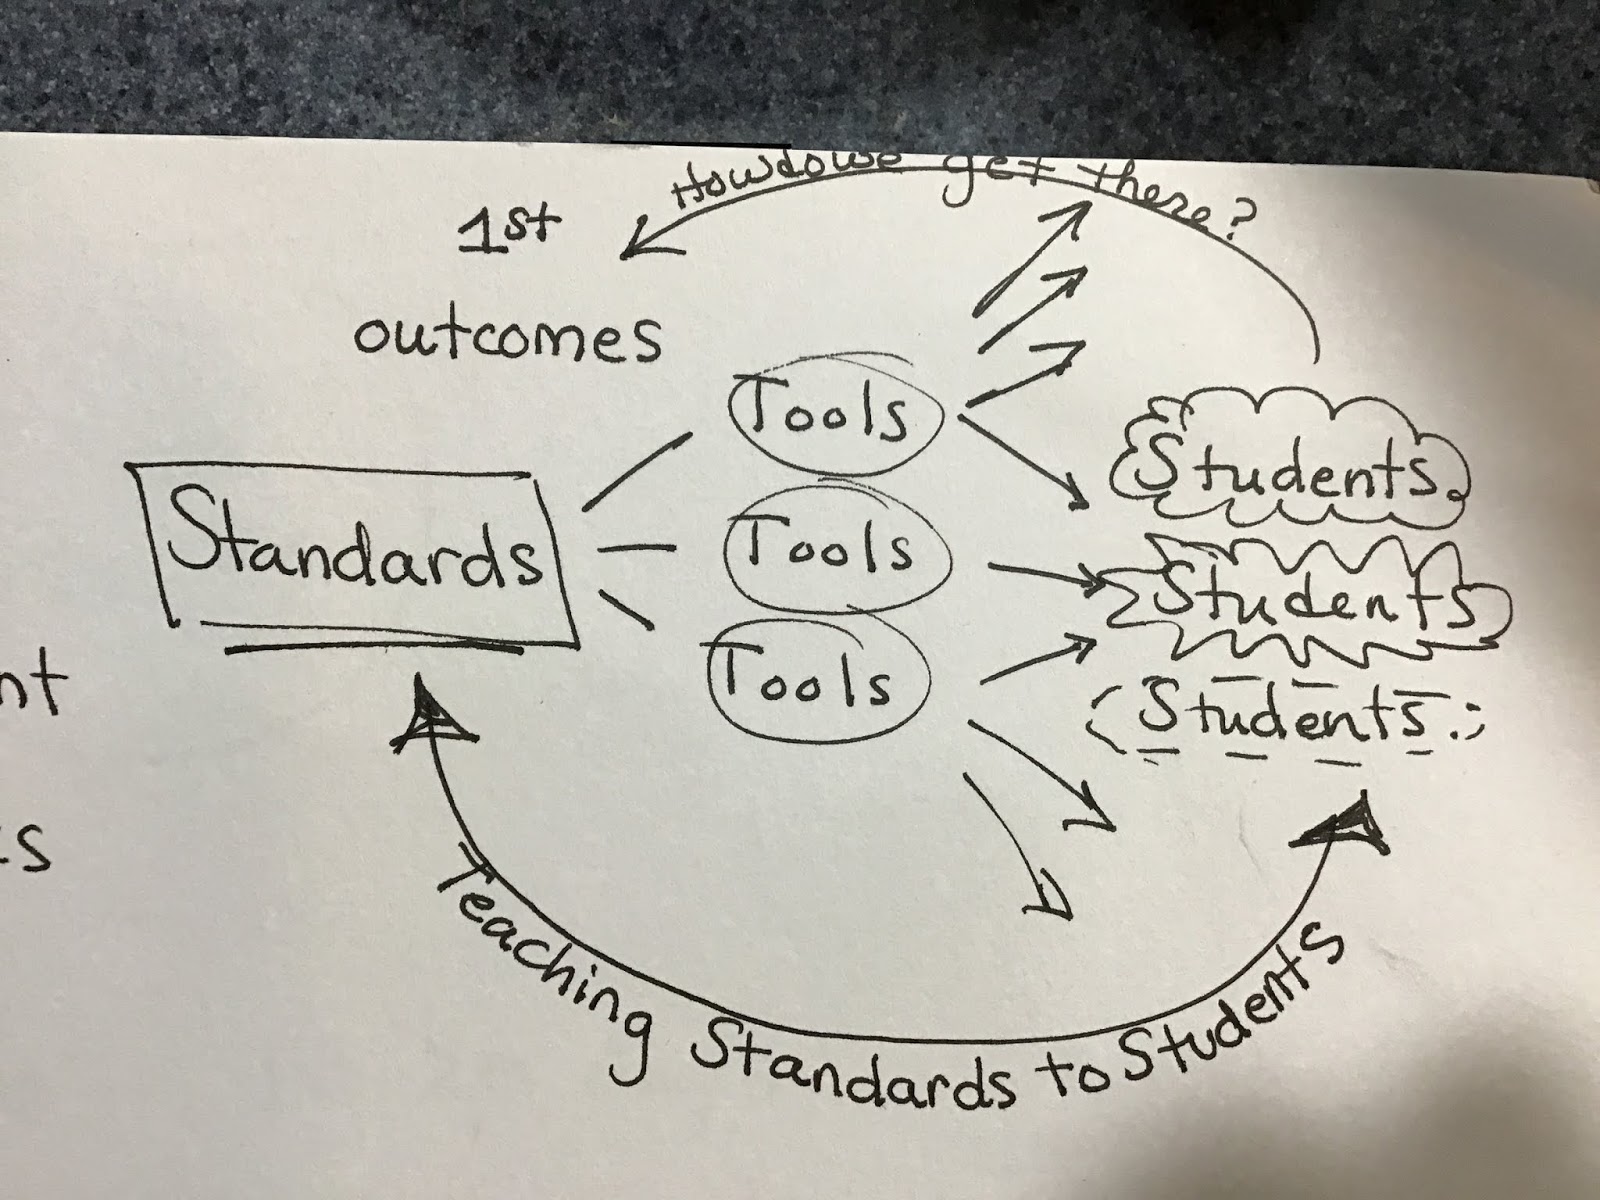 How do we get there?
1st
outcomes
Tools
Tools
Tools
Standards
Students
Students
Students
nt
s
Teaching Standards to Students